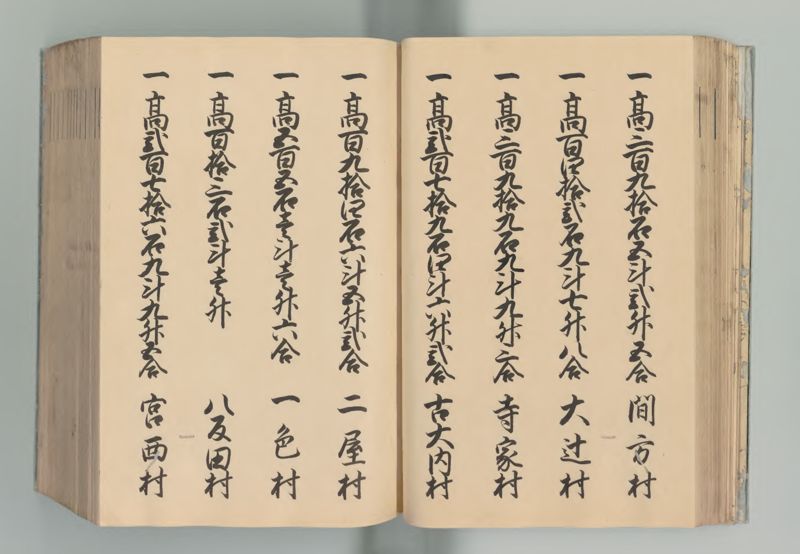 一高三百九拾石五斗弐升五合 間方村
一高百四拾弐石九斗七升八合 大辻村
一高三百九拾九石九斗九升三合 寺家村
一高弐百七拾九石四斗六升弐合 古大内村
一高百九拾四石六斗五升弐合 二屋村
一高五百五石壱斗壱升六合 一色村
一高百拾三石弐斗壱升 八反田村
一高弐百七拾六石九斗九升五合 宮西村